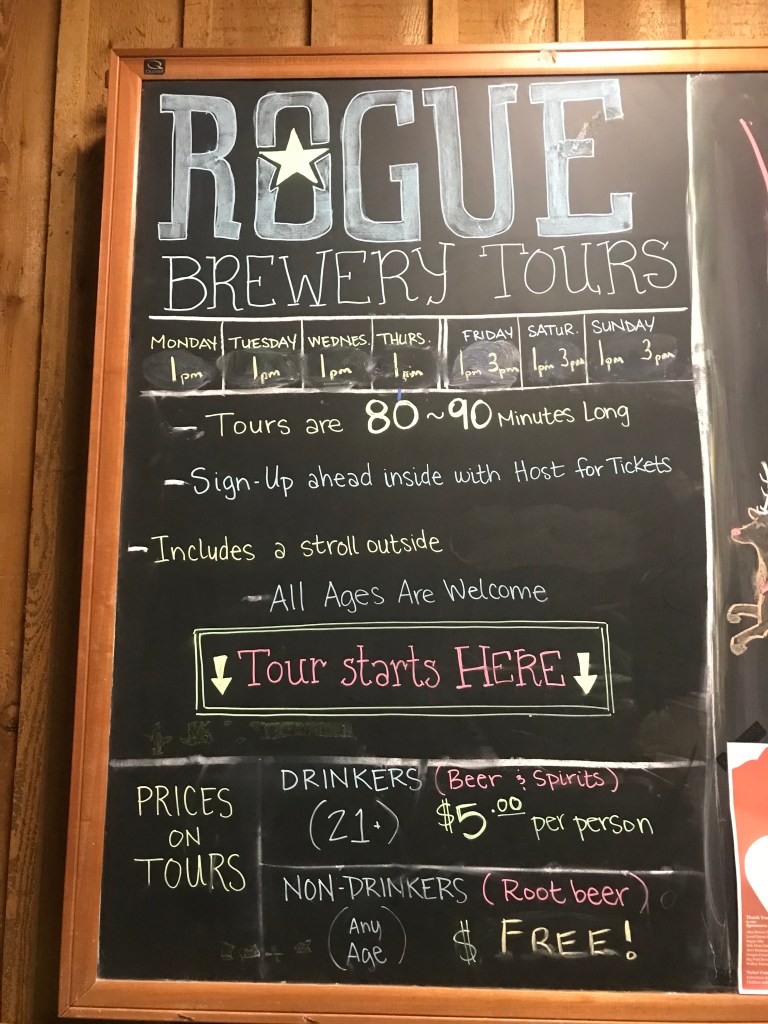 ROGUE
BREWERY TOURS
MONDAY TUESDAY WEDNES. THURS. FRIDAY SATUR. SUNDAY
1pm 1pm 1pm 1pm 1pm 3pm 1pm 3pm 1pm 3pm
- Tours are 80~90 Minutes Long
- Sign-Up ahead inside with Host for Tickets
- Includes a stroll outside
- All Ages Are Welcome
Tour starts HERE
PRICES
ON
TOURS
DRINKERS (Beer & Spirits)
(21+) $5.00 per person
NON-DRINKERS (Root beer)
(Any
Age) $ FREE!